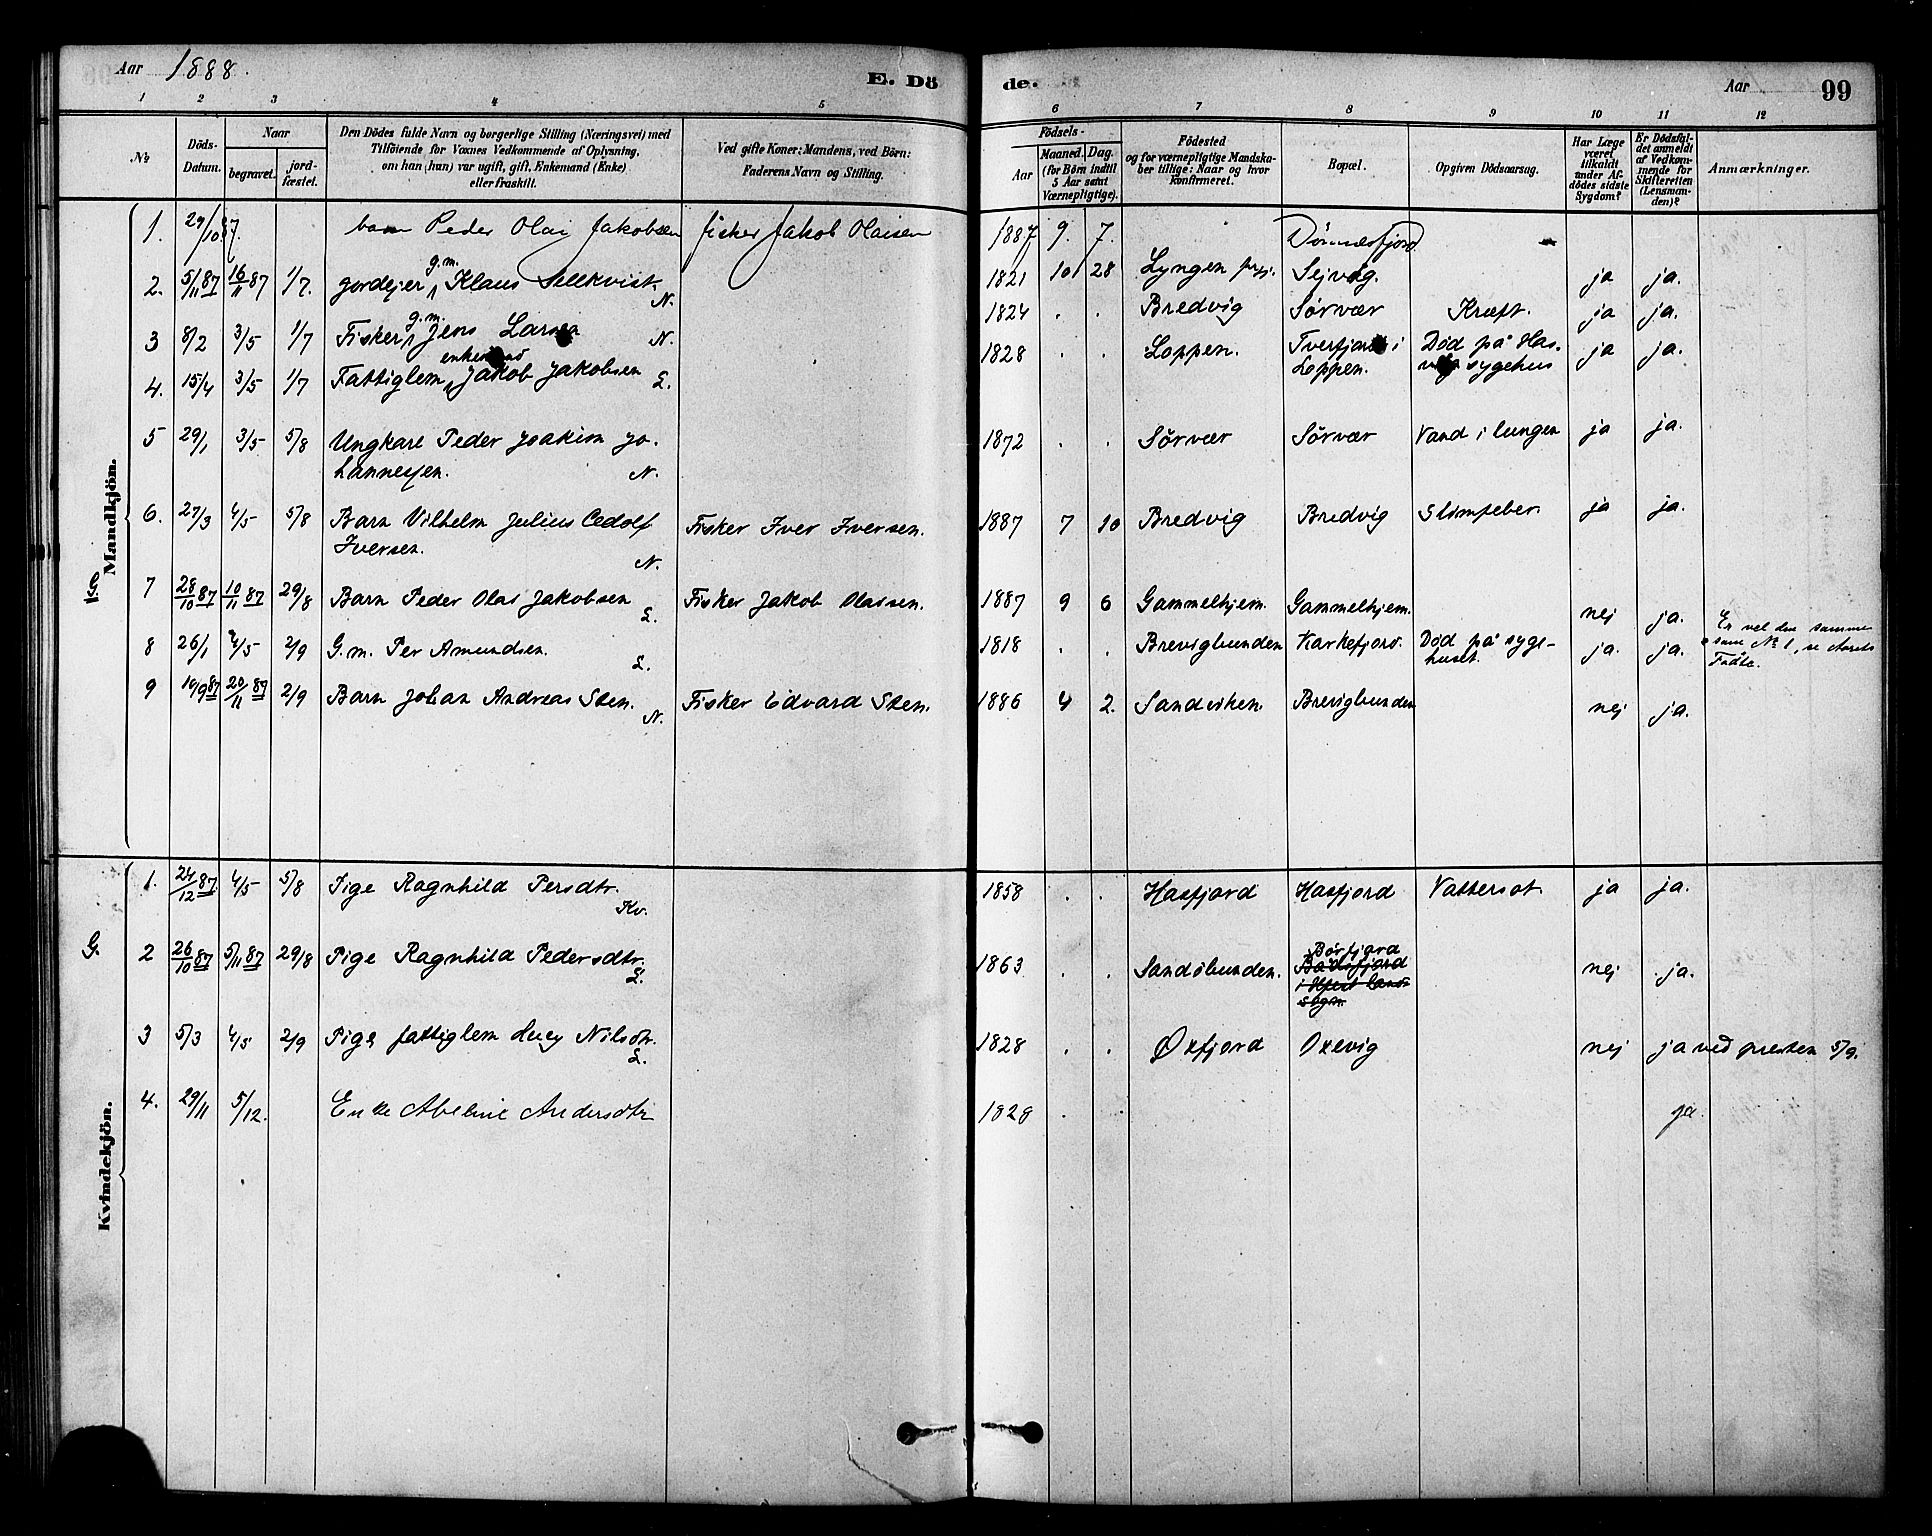 Aar 1888. E. Dö de. Aar 99
1 2 3 4 5 6 7 8 9 10 11 12
№ Döds-Datum. Naar begravet. jord-fæstet. Den Dödes fulde Navn og borgerlige Stilling (Næringsvei) med Tilföiende for Voxnes Vedkommende af Oplysning, om han (hun) var ugift, gift, Enkemand (Enke) eller fraskilt. Ved gifte Koner: Mandens, ved Börn: Faderens Navn og Stilling. Födsels- Aar Maaned. Dag. (for Börn indtil 5 Aar samt Værnepligtige). Födested og for værnepligtige Mandskaber tillige: Naar og hvor Konfirmeret. Bopæl. Opgiven Dödsaarsag. Har Læge været tilkaldt under Afdödes sidste Sygdom? Er Dödsfaldet anmeldt af Vedkommende for Skifteretten (Lensmanden)? Anmærkninger.
Mandkjön.
1. 29/10 87. barn Peder Olai Jakobsen fisker Jakob Olaisen 1887 9. 7. Dönnesfjord
2. 5/11 87 16/11 87 1/7. gardejer g.m. Klaus Sellkvist. N. 1821 10 28 Lyngen prgj. Sejvåg. ja ja.
3 8/2 3/5 1/7 Fisker, g.m. Jens Larsen N. 1824 . . Bredvig Sørvær Kræft. ja ja.
4. 15/4 3/5 1/7 Fattiglem, enkemand Jakob Jakobsen L. 1828 . . Loppen. Tverfjord i Loppen. Død på Hasvåg sygehus ja ja.
5 29/1 3/5 5/8 Ungkarl Peder Joakim Jo-
hannesen. N. 1872 . . Sørvær Sørvær Vand i lungen ja ja.
6. 27/3 4/5 5/8 Barn Vilhelm Julius Cedolf
Iversen. N. Fisker Iver Iversen. 1887 7 10 Bredvig Bredvig Slimfeber. ja ja.
7 28/10 87 10/11 87 29/8 Barn Peder Olai Jakobsen L. Fisker Jakob Olaisen. 1887 9 6 Gammelhjem. Gammelhjem. nej ja. Er vel den samme som No 1, se Aarets Fødte.
8 26/1 4/5 2/9 G.m. Per Amundsen. L. 1818 . . Brevigbunden Karkefjord. Død på syge-
huset. ja. ja.
9 19/9 87 20/11 87 2/9 Barn Johan Andreas Sten. N. Fisker Edvard Sten. 1886 4 2. Sandviken Brevigbunden nej ja.
Kvindekjön.
1. 24/12 87. 4/5 5/8 Pige Ragnhild Persdtr. Kv. 1858 . . Hasfjord Hasfjord Vattersot. ja ja.
G. 2 26/10 87 5/11 87 29/8 Pige Ragnhild Pedersdtr. L. 1863 . . Sandøbunden. Børfjord
Bådsfjord
i Hfest land-
sogn nej ja.
3 5/3 4/5 2/9 Pige fattiglem Lucy Nilsdtr. L. 1828 . . Øxfjord Oxevig nej ja ved presten 5/9.
4. 29/11 5/12. Enke Abeline Andersdtr 1828 . ja.